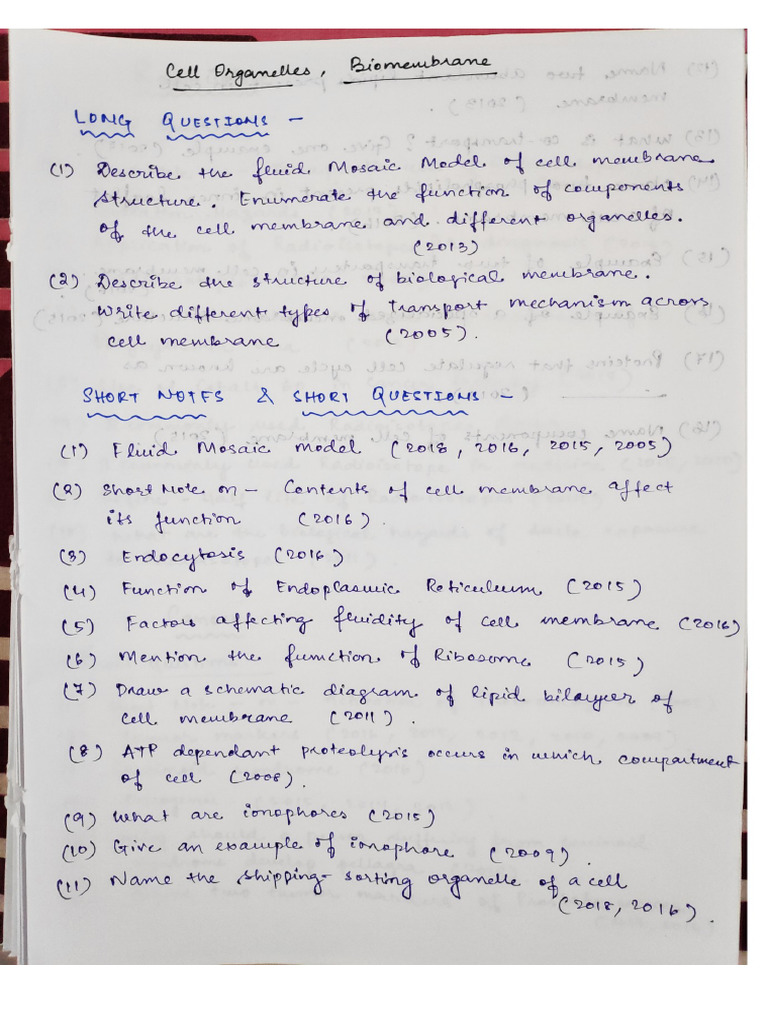 Cell Organelles, Biomembrane
LONG QUESTIONS -
(1) Describe the fluid Mosaic Model of cell membrane
structure. Enumerate the function of components
of the cell membrane and different organelles.
(2013)
(2) Describe the structure of biological membrane.
Write different types of transport mechanism across
cell membrane (2005).
SHORT NOTES & SHORT QUESTIONS -
(1) Fluid Mosaic model (2018, 2016, 2015, 2005)
(2) Short Note on - Contents of cell membrane affect
its function (2016).
(3) Endocytosis (2016)
(4) Function of Endoplasmic Reticulum (2015)
(5) Factors affecting fluidity of cell membrane (2016)
(6) Mention the function of Ribosome (2015)
(7) Draw a schematic diagram of lipid bilayer of
cell membrane (2011).
(8) ATP dependant proteolysis occurs in which compartment
of cell (2008).
(9) What are ionophores (2015)
(10) Give an example of ionophore (2009).
(11) Name the shipping-sorting organelle of a cell
(2018, 2016).